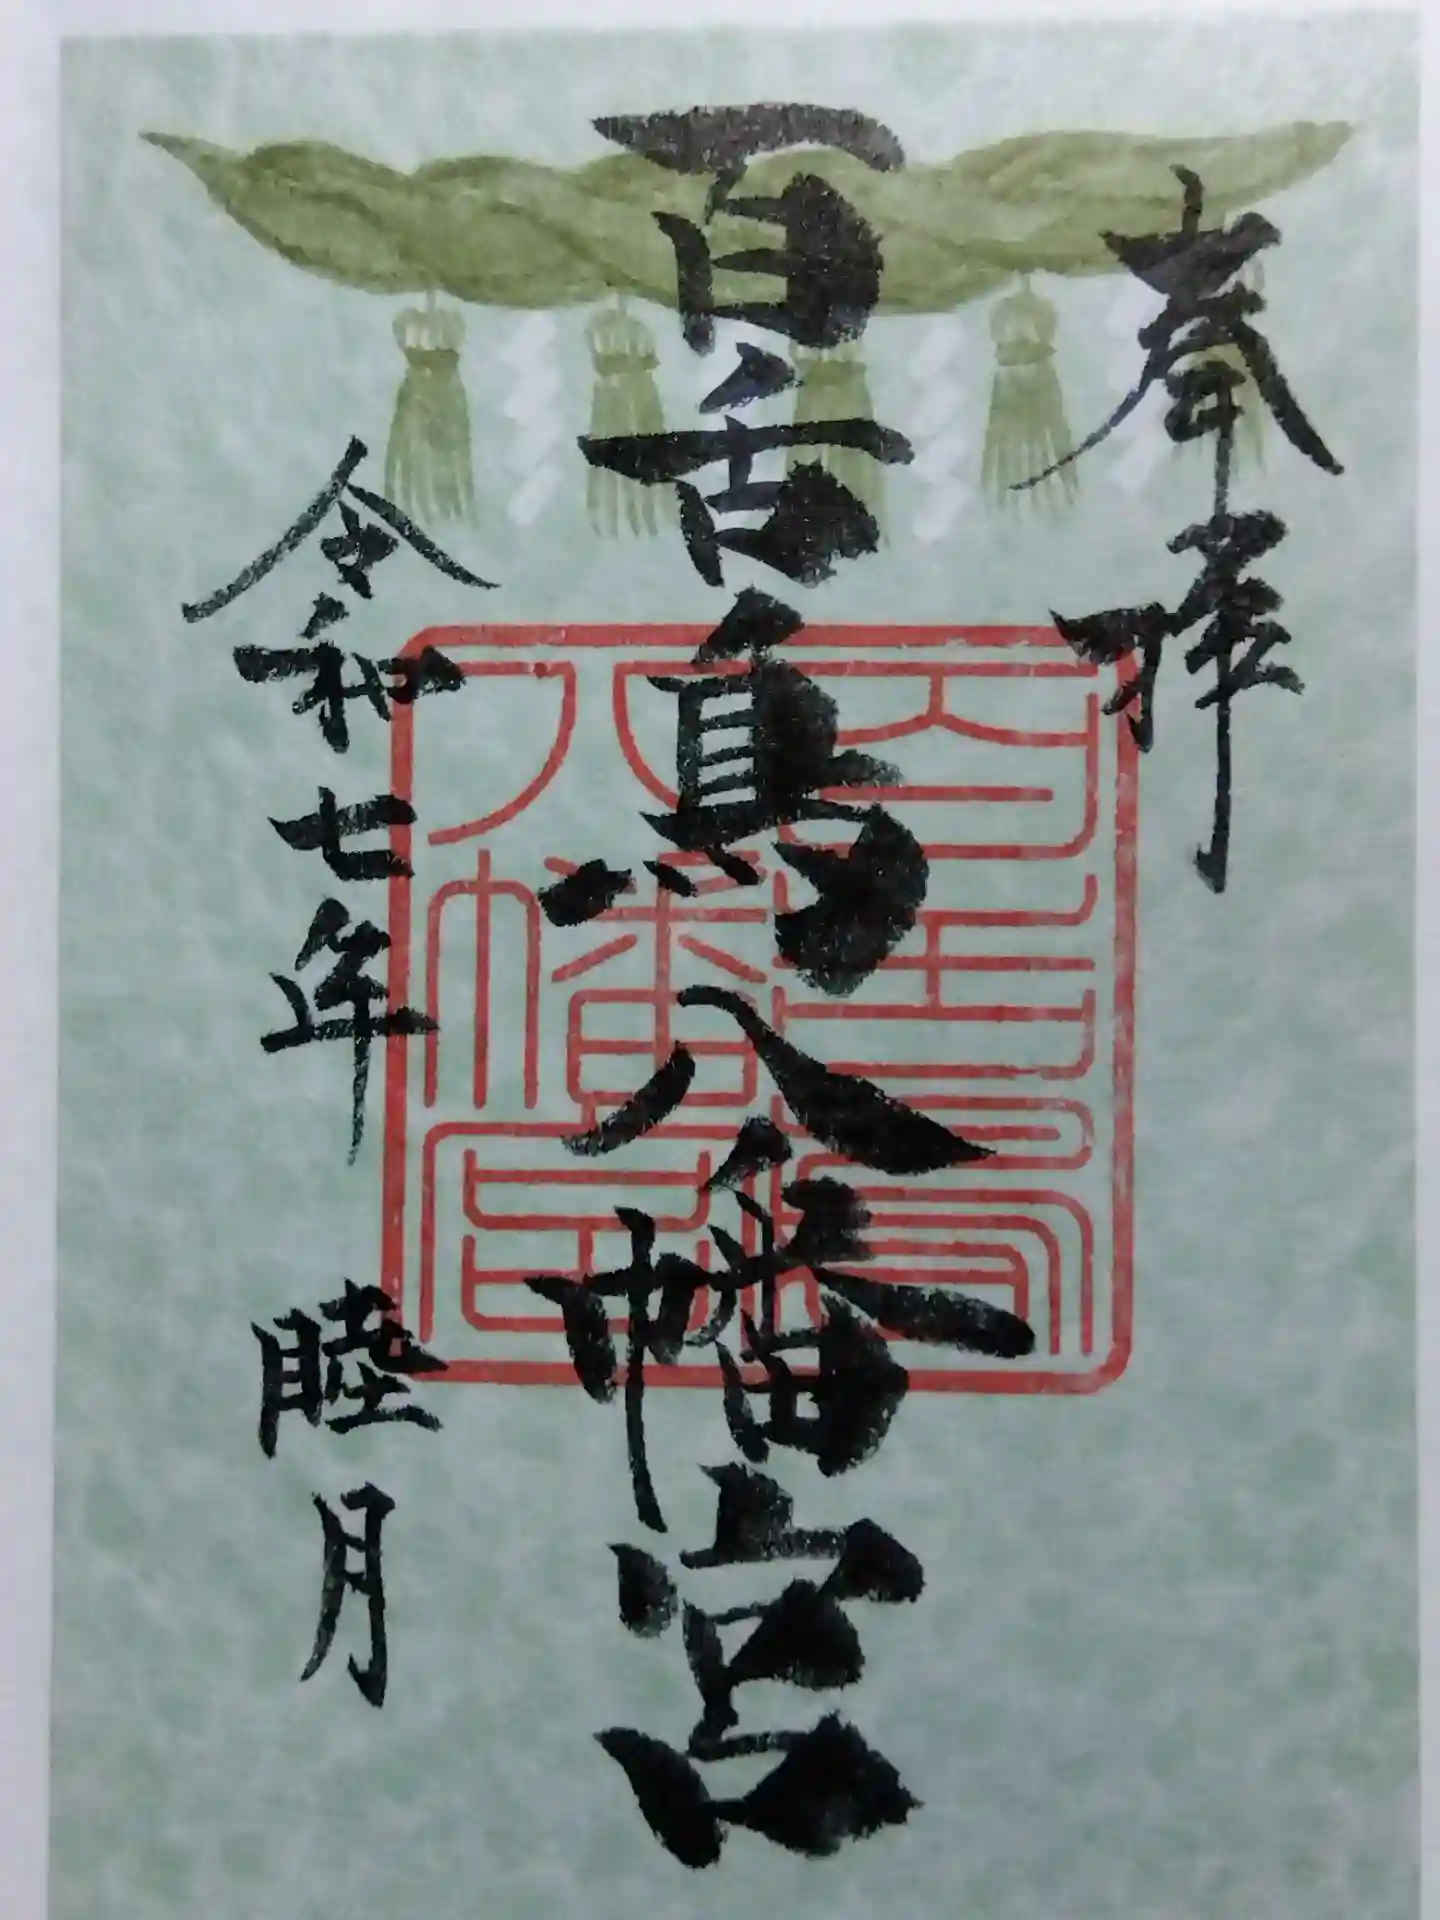 奉拝
百舌鳥八幡宮
令和七年 睦月
百舌鳥
八幡宮